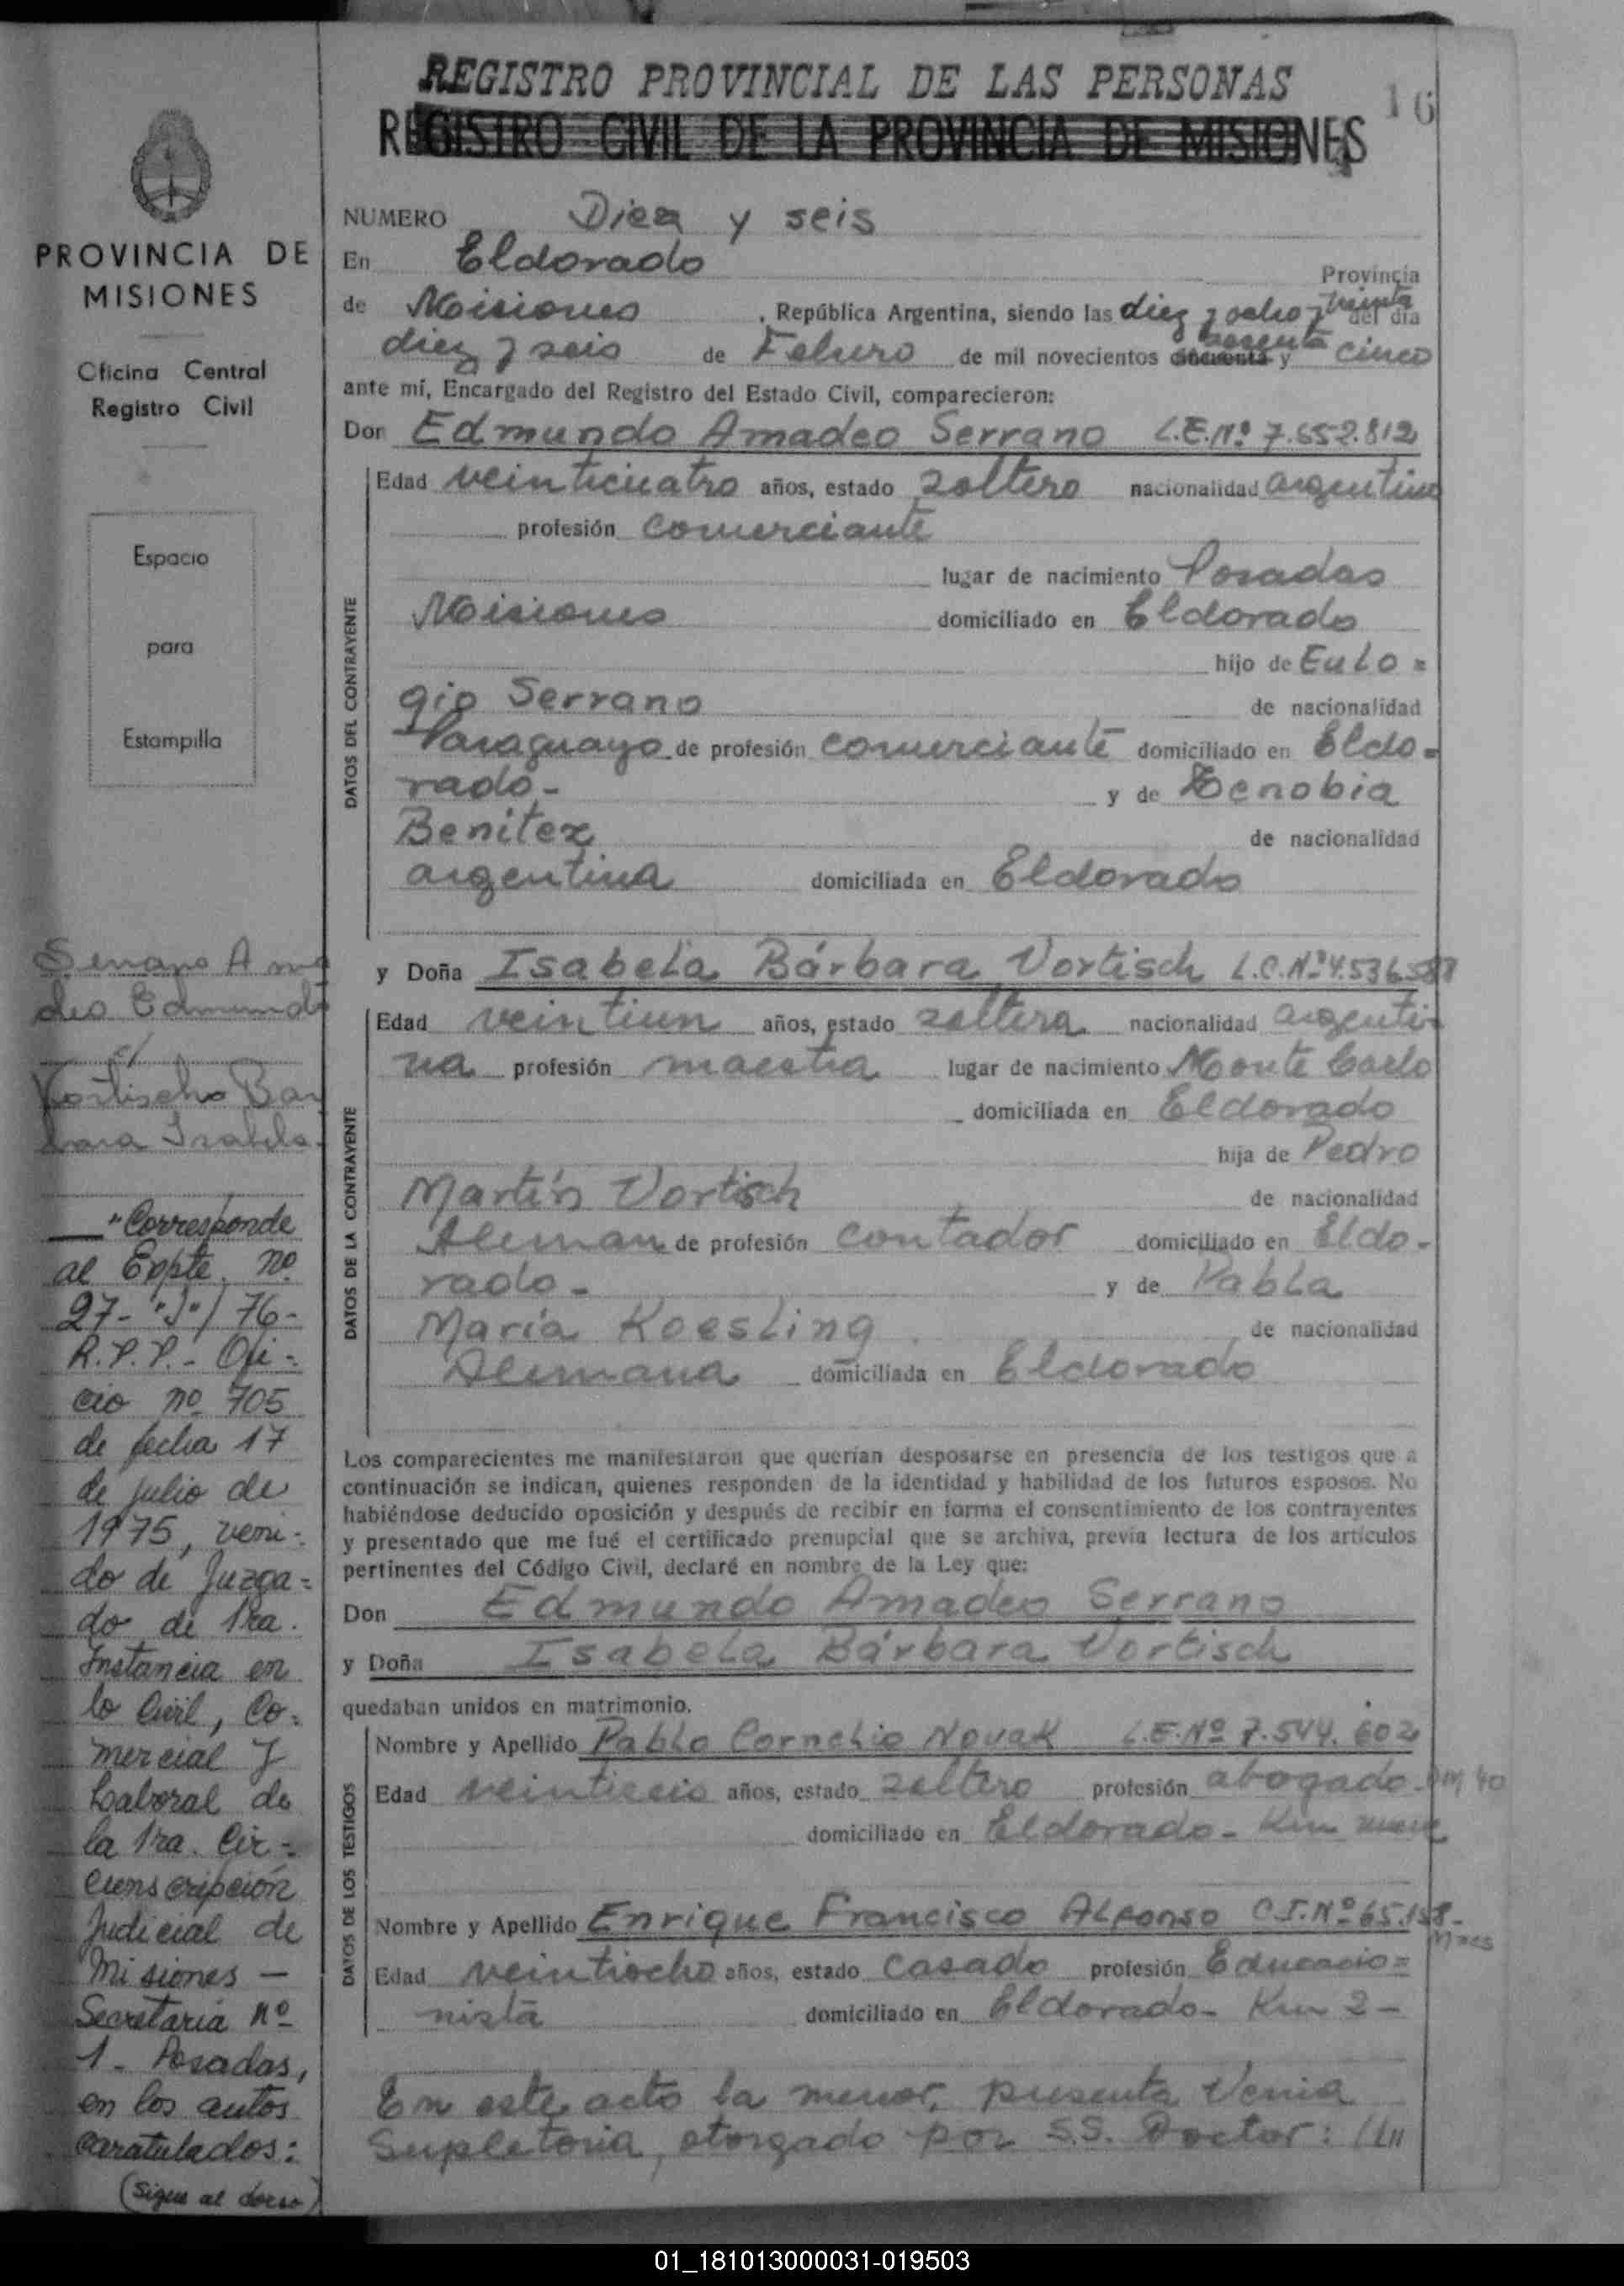 REGISTRO PROVINCIAL DE LAS PERSONAS
16
REGISTRO CIVIL DE LA PROVINCIA DE MISIONES
PROVINCIA DE
MISIONES
Oficina Central
Registro Civil
Espacio
para
Estampilla
Serrano Ama
deo Edmundo
c/
Vortischo Bar
bara Isabela.
"Corresponde
al Expte. nº
27-"J"/76-
R.P.P.- Ofi-
cio nº 705
de fecha 17
de julio de
1975, veni-
do de Juzga-
do de 1ra.
Instancia en
lo Civil, Co-
mercial y
Laboral de
la 1ra. Cir-
cunscripción
Judicial de
Misiones —
Secretaría Nº
1- Posadas,
en los autos
caratulados:
(Sigue al dorso)
NUMERO Diez y seis
En Eldorado Provincia
de Misiones, República Argentina, siendo las diez y ocho y treinta del día
diez y seis de Febrero de mil novecientos cincuenta sesenta y cinco
ante mí, Encargado del Registro del Estado Civil, comparecieron:
Don Edmundo Amadeo Serrano L.E.Nº 7.652.812
DATOS DEL CONTRAYENTE
Edad veinticuatro años, estado soltero nacionalidad argentino
profesión comerciante
lugar de nacimiento Posadas
Misiones domiciliado en Eldorado
hijo de Eulo=
gio Serrano de nacionalidad
Paraguayo de profesión comerciante domiciliado en Eldo=
rado- y de Zenobia
Benitez de nacionalidad
argentina domiciliada en Eldorado
y Doña Isabela Bárbara Vortisch L.C.Nº4.536.588
DATOS DE LA CONTRAYENTE
Edad veintiun años, estado soltera nacionalidad argenti-
na profesión maestra lugar de nacimiento Monte Carlo
domiciliada en Eldorado
hija de Pedro
Martín Vortisch de nacionalidad
Aleman de profesión contador domiciliado en Eldo-
rado- y de Pabla
María Koesling de nacionalidad
Alemana domiciliada en Eldorado
Los comparecientes me manifestaron que querían desposarse en presencia de los testigos que a
continuación se indican, quienes responden de la identidad y habilidad de los futuros esposos. No
habiéndose deducido oposición y después de recibir en forma el consentimiento de los contrayentes
y presentado que me fué el certificado prenupcial que se archiva, previa lectura de los artículos
pertinentes del Código Civil, declaré en nombre de la Ley que:
Don Edmundo Amadeo Serrano
y Doña Isabela Bárbara Vortisch
quedaban unidos en matrimonio.
DATOS DE LOS TESTIGOS
Nombre y Apellido Pablo Cornelio Novak L.E.Nº 7.544.602
Edad veintiseis años, estado soltero profesión abogado-
domiciliado en Eldorado- Km nueve
Nombre y Apellido Enrique Francisco Alfonso C.I.Nº65.158-
Mnes
Edad veintiocho años, estado casado profesión Educacio=
nista domiciliado en Eldorado- Km 2-
En este acto la menor, presenta Venia
Supletoria, otorgado por S.S. Doctor:
01_181013000031-019503